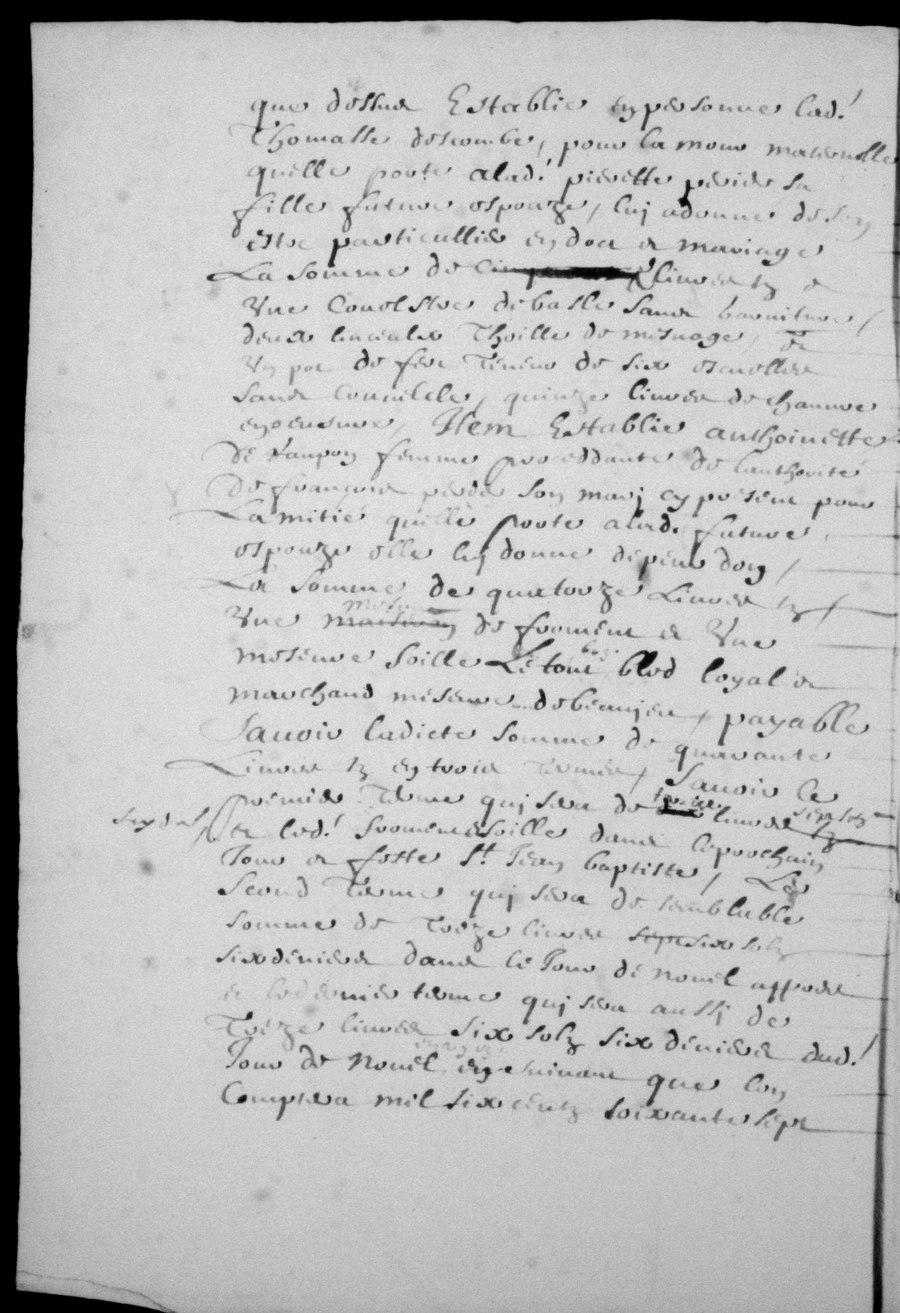 que dessus Establie en personne lad.!
Thomasse descombe, pour lamour maternelle
quelle porte alad.! pierette perier sa
fille future espouze, luj adonne de son
estre particullier en dot et mariage
La Somme de livres tz et
Une Couelstre debasle sans garniture,
deux linceulx Thoille de mesnage, et
Un pot de fert Teneur de six escuelles
sans couuercle, quinze liures de chanure
enoeuure, Item Establie anthoinette
De femme proceddante de lauthorité
De francois perier son marj cy present pour
Lamitié quelle porte alad. future
espouze elle luj donne depeur don,
La Somme de quatorze Liures tz,
Une mesure de froment et Vne
meseure soille Le tout bled loyal et
marchand meseure debeaujeu, payable
Sauoir ladicte Somme de quarante
Liures tz en trois termes, Sauoir le
premier Terme quj sera de treize liures six solz
six d.
et led.! froment soille dans leprochain
Jour et feste St. Jean baptiste, Le
Second Terme quj sera de semblable
somme de Treze liures six solz
six deniers dans le Jour de nouel appres
et le dernier terme quj sera aussj de
Treze liures six solz six deniers dud.!
Jour de Nouel en suiuant que lon
Comptera mil six centz soixante sept